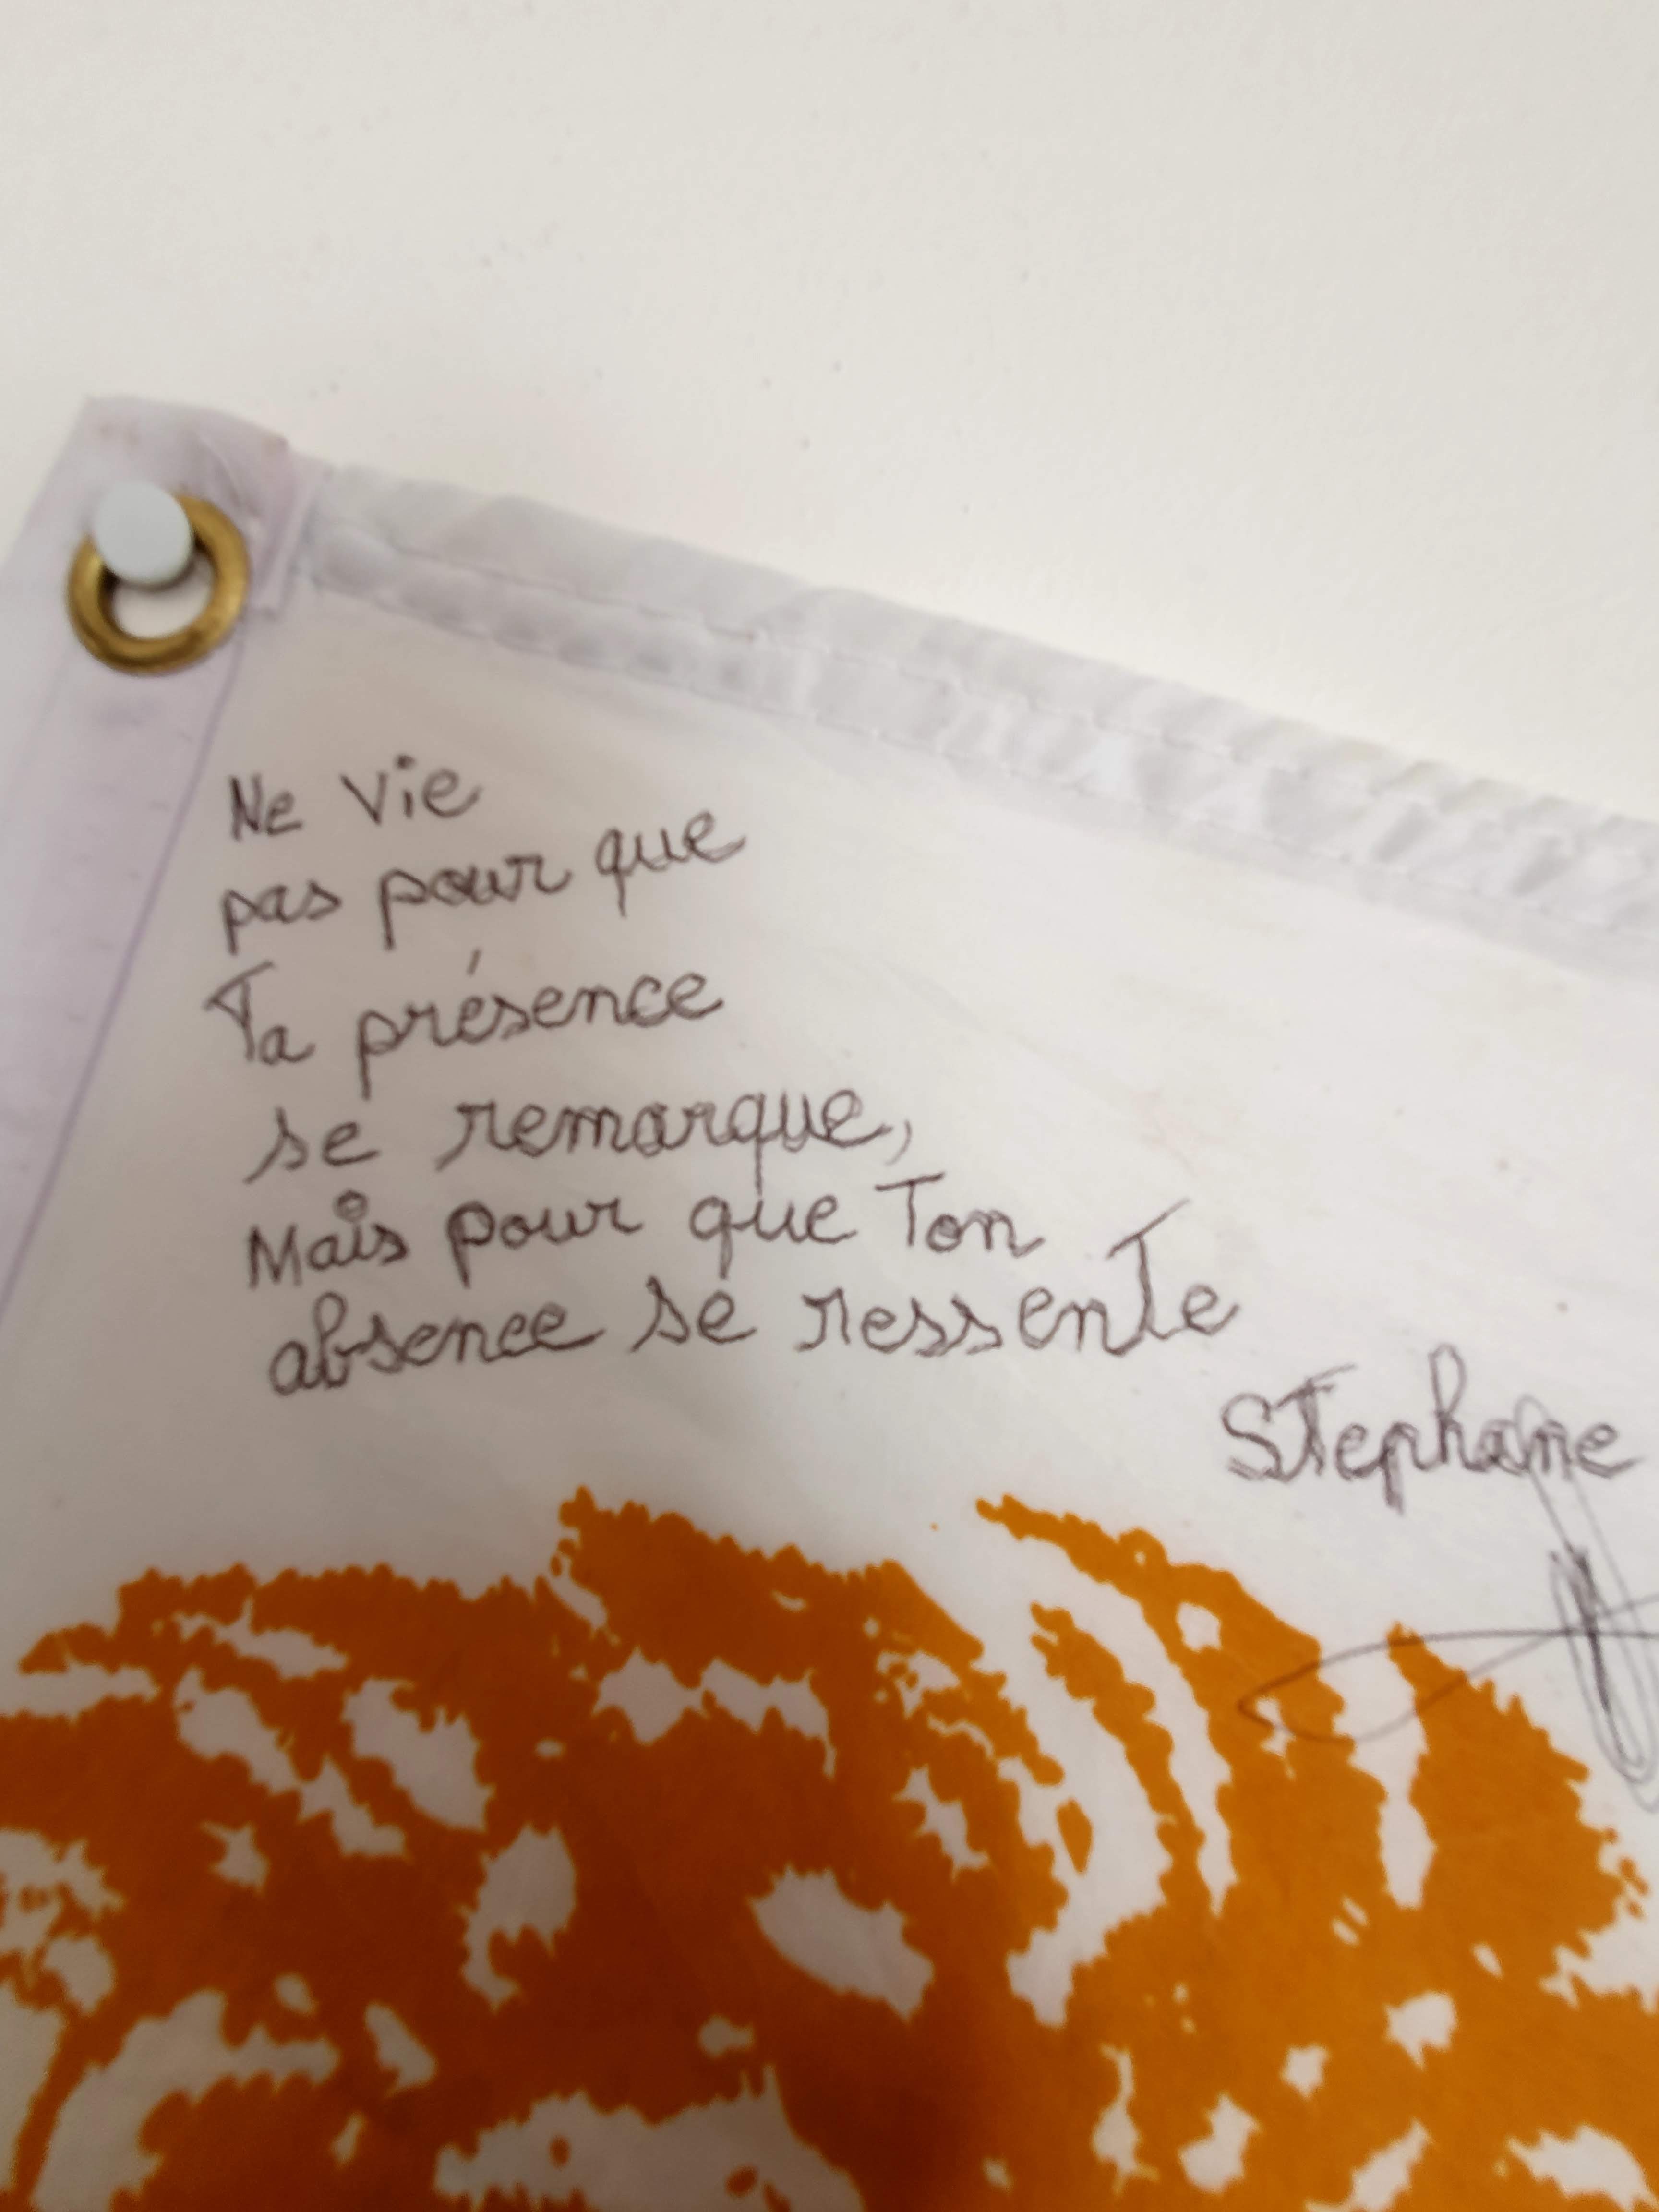 Ne vie
pas pour que
Ta présence
se remarque,
Mais pour que Ton
absence se ressente
Stephane